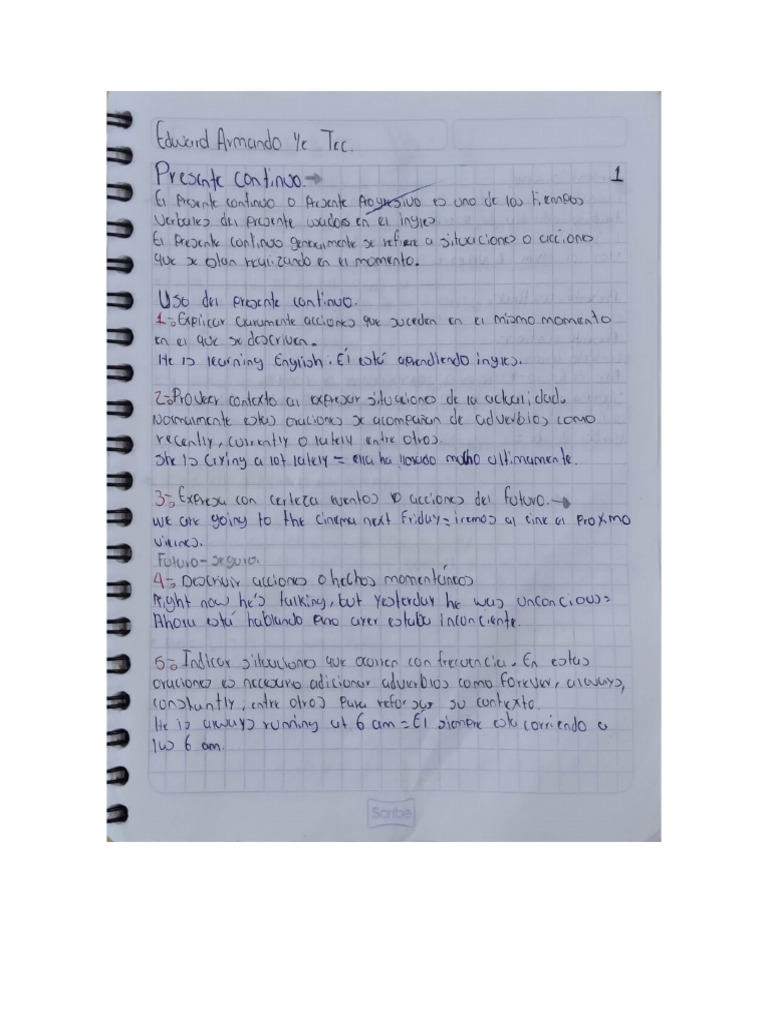 Edward Armando Ye Tec.
Presente continuo. → 1
El presente continuo o presente Progresivo es uno de los tiempos
verbales del presente usados en el ingles
El presente continuo generalmente se refiere a situaciones o acciones
que se estan realizando en el momento.
Uso del presente continuo.
1-Explicar claramente acciones que suceden en el mismo momento
en el que se describen.
He is learning English. Él está aprendiendo ingles.
2-Proveer contexto al expresar situaciones de la actualidad.
Normalmente estas oraciones se acompañan de adverbios como
recently, currently o lately entre otros.
She is crying a lot lately = ella ha llorado mucho ultimamente.
3-Expresa con certeza eventos o acciones del futuro. →
we are going to the cinema next friday = iremos al cine el proximo
viernes.
Futuro-seguro.
4-Describir acciones o hechos momentáneos
Right now he's talking, but yesterday he was unconcious =
Ahora está hablando pero ayer estaba inconciente.
5-Indicar situaciones que ocurren con frecuencia. En estas
oraciones es necesario adicionar adverbios como forever, always,
constantly, entre otros para reforsar su contexto.
He is always running at 6 am = Él siempre esta corriendo a
las 6 am.
Scribe